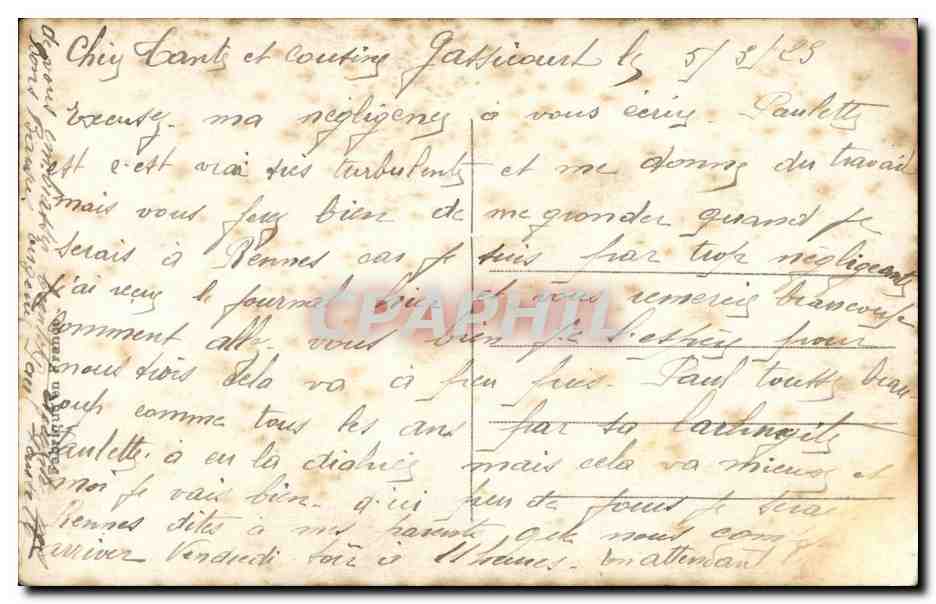 Chers Tante et cousins Gassicourt le 5/3/29
Excusez ma négligence à vous écrire. Paulette
est c'est vrai très turbulente et me donne du travail
mais vous ferez bien de me gronder quand je
serais à Rennes car je suis par trop négligeante
j'ai reçu le journal hier et vous remercie beaucoup
comment allez vous bien je l'espère pour
nous trois cela va à peu près. Paul tousse beau-
coup comme tous les ans par sa laryngite
Paulette à eu la diahrée mais cela va mieux et
moi je vais bien. d'ici peu de jours je serai
Rennes dites à mes parents que nous
arriver Vendredi soir à 11 heures. En attendant
de vous embrasser
gros Baisers
Fabriqué en France
CPAPHIL